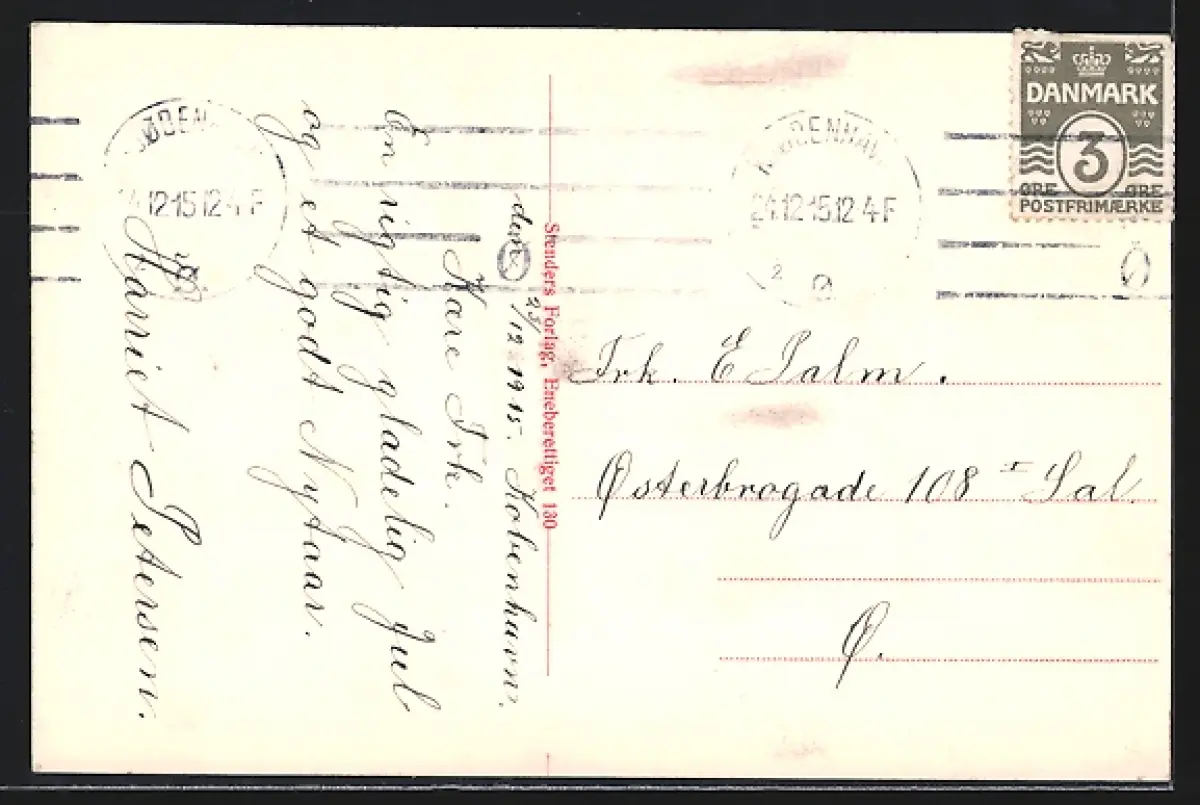 den 23/12 1915. København.
Kære Frk.
En rigtig glædelig Jul
og et godt Nytaar.
Harriet Petersen.
Stenders Forlag, Eneberettiget 130
KØBENHAV
24.12.15.12 4 F
2 Ø
DANMARK
3
ØRE ØRE
POSTFRIMÆRKE
Frk. E Palm.
Østerbrogade 108 I Sal.
Ø.
ØBEN
12.15.12 4 F